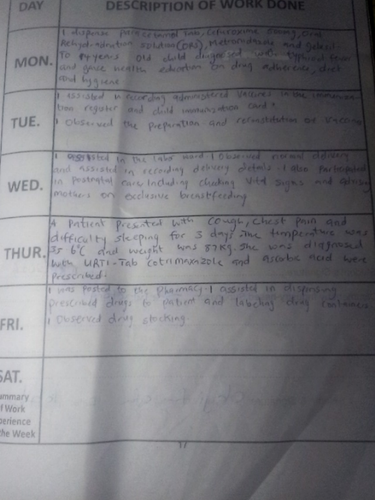 DAY DESCRIPTION OF WORK DONE
MON.
I dispense paracetamol tab, Cefuroxime 500mg, oral
Rehydration solution (ORS), Metronidazole and
To years old child diagnosed with Typhoid fever
and gave health education on drug adherence, diet
and hygiene
TUE.
I assisted in recording administered vaccines in the immuniza-
tion register and child immunization card.
I observed the preparation and reconstitution of vaccines
WED.
I assisted in the labor ward. I observed normal delivery
and assisted in recording delivery details. I also participated
in postnatal care including checking vital signs and
mothers on exclusive breastfeeding
THUR.
A patient presented with cough, chest pain and
difficulty sleeping for 3 days. The temperature was
°C and weight was kg. She was diagnosed
with URTI - Tab cotrimoxazole and ascorbic acid were
prescribed.
FRI.
I was posted to the pharmacy. I assisted in dispensing
prescribed drugs to patient and labeling drug containers
I observed drug stocking.
SAT.
ummary
f Work
perience
he Week